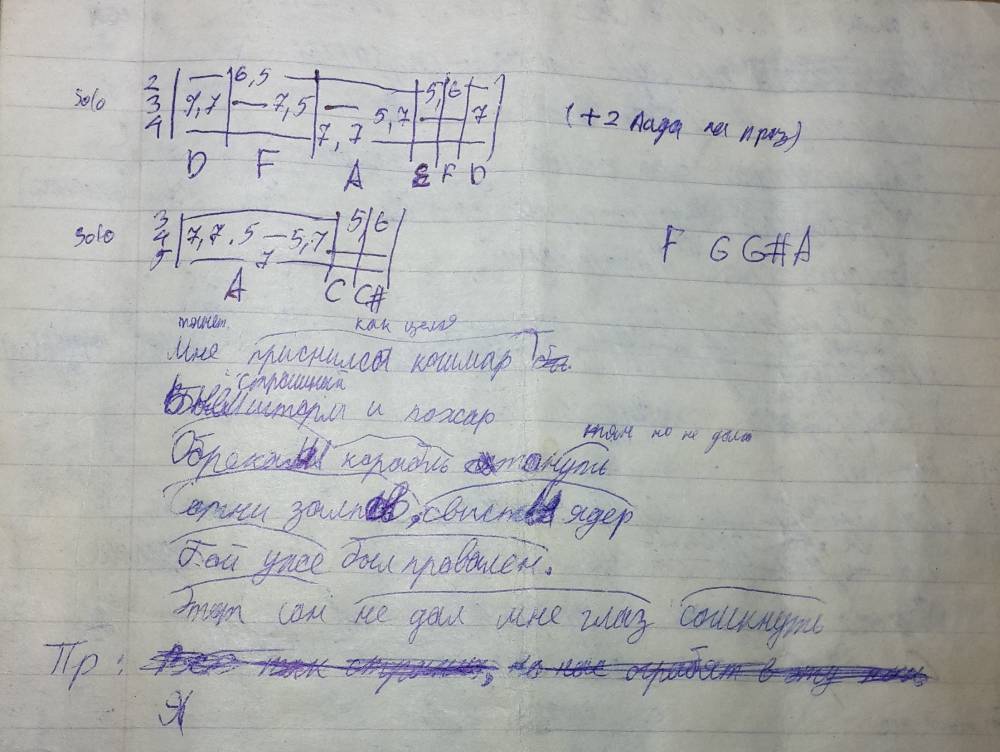 2 — 6,5 — 5, 6 —
Solo 3 7,7 — 7,5 — 5,7 — 7 (+2 лада на приз)
4 — 7,7 —
D F A E F D
3 5, 6
Solo 4 7,7.5 — 5,7 F G G# A
5 — 7 —
A C C#
тонет как целя
Мне приснился кошмар
страшный
Был шторм и пожар
тян но не дала
Обрекали корабль утонуть
Сотни залпов, свисты ядер
Бой уже был провален.
Этот сон не дал мне глаз сомкнуть
Пр:
Я